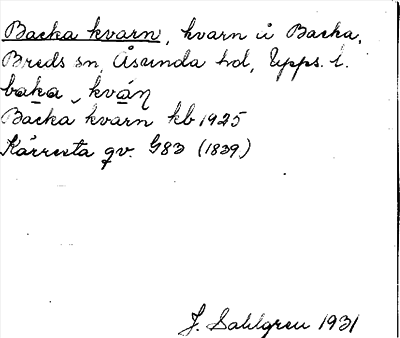 Backa kvarn, kvarn å Backa,
Breds sn, Åsunda hd, Upps. l.
baka kváṇ
Backa kvarn kb 1925
Kärrsta qv. G83 (1839)
J. Sahlgren 1931